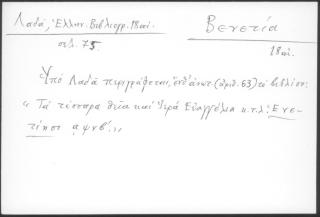 Λαδᾶ, Ἑλλην. Βιβλιογρ. 18 αἰ.
Βενετία
σελ. 75.
18 αἰ.
Ὑπὸ Λαδᾶ περιγράφεται, ἐνθ' ἀνωτ. (ἀριθ. 63) τὸ βιβλίον:
« Τὰ τέσσαρα θεῖα καὶ Ἱερὰ Εὐαγγέλια κ.τ.λ. Ἐνε-
τίησι αψνβ'. »